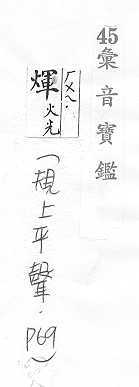 45彙音寶鑑
ㄏㄨㄟ.
煇火光
(規上平聲.P69)